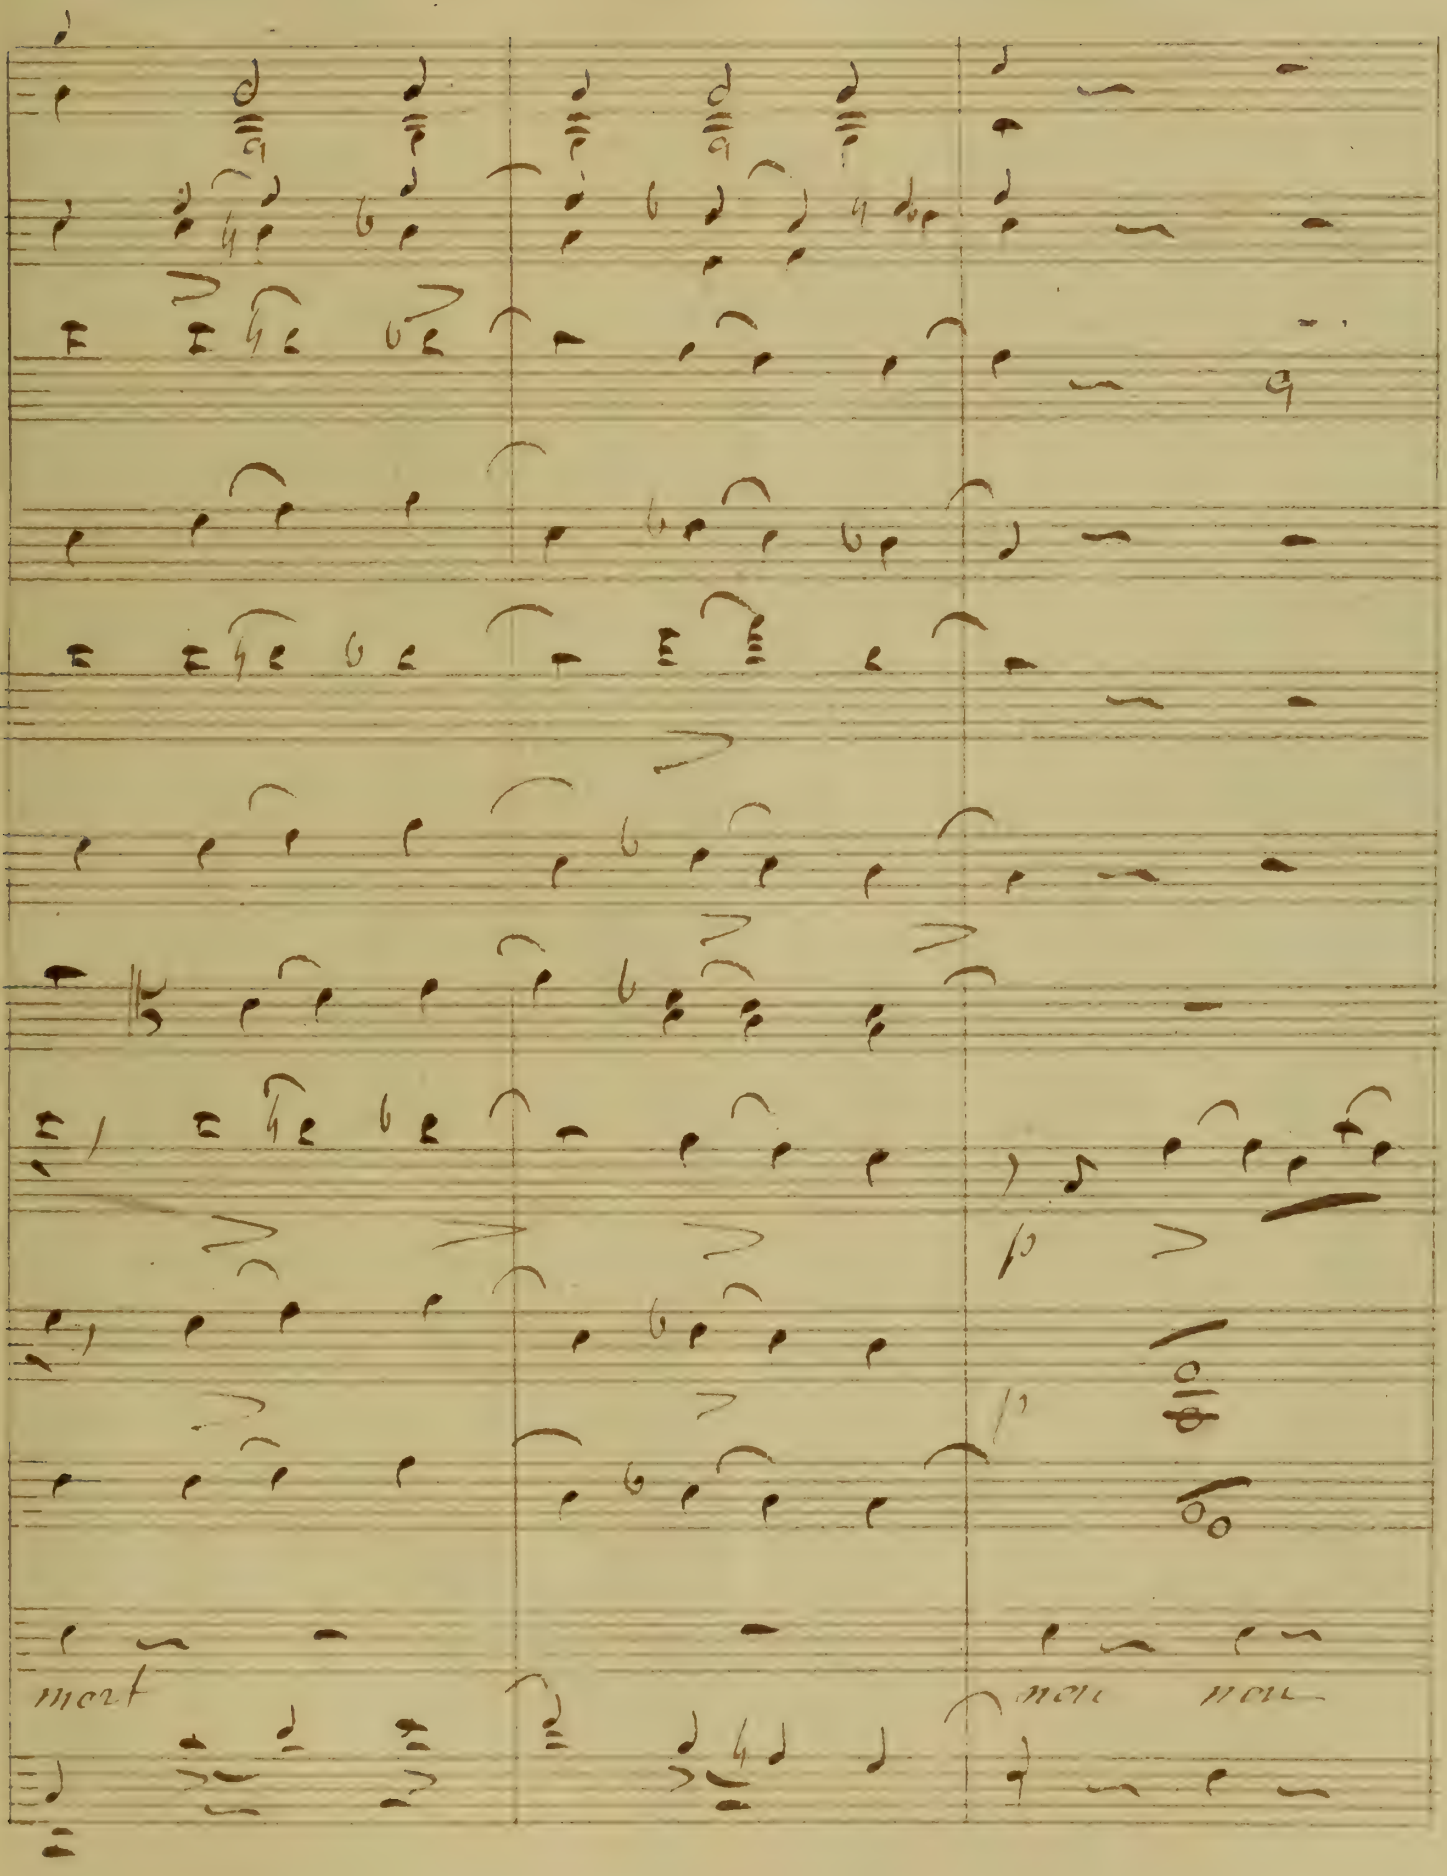 p
p
mort non non